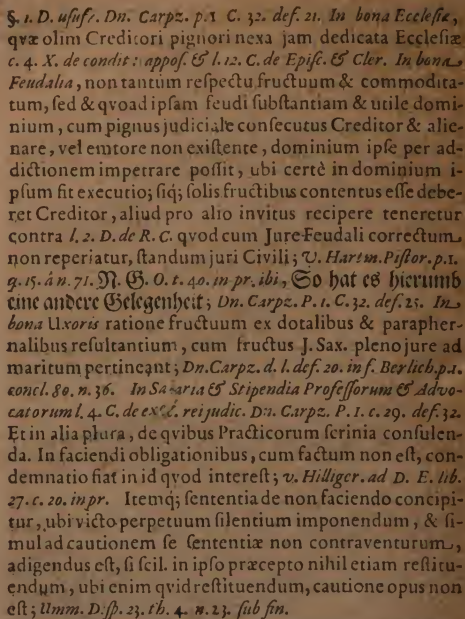 §. 1. D. usuf. Dn. Carpz. p. 1 C. 32. def. 21. In bona Ecclesiæ,
qvæ olim Creditori pignori nexa jam dedicata Ecclesiæ
c. 4. X. de condit: appos. & l. 12. C. de Episc. & Cler. In bona
Feudalia, non tantùm respectu fructuum & commodita-
tum, sed & qvoad ipsam feudi substantiam & utile domi-
nium, cum pignus judiciale consecutus Creditor & alie-
nare, vel emtore non existente, dominium ipse per ad-
dictionem impetrare possit, ubi certè in dominium i-
psum fit executio; siq; solis fructibus contentus esse debe-
ret Creditor, aliud pro alio invitus recipere teneretur
contra l. 2. D. de R. C. qvod cum Jure Feudali correctum
non reperiatur, standum juri Civili; V. Hartm. Pistor. p. 1.
q. 15. à n. 71. N. G. O. t. 40. in pr. ibi, So hat es hierumb
eine andere Gelegenheit; Dn. Carpz. P. 1. C. 32. def. 25. In
bona Uxoris ratione fructuum ex dotalibus & parapher-
nalibus resultantium, cum fructus J. Sax. pleno jure ad
maritum pertineant; Dn. Carpz. d. l. def. 20. in f. Berlich. p. 1.
concl. 80. n. 36. In Salaria & Stipendia Professorum & Advo-
catorum l. 4. C. de exec. rei judic. Dn. Carpz. P. 1. c. 29. def. 32.
Et in alia plura, de qvibus Practicorum scrinia consulen-
da. In faciendi obligationibus, cum factum non est, con-
demnatio fiat in id qvod interest; v. Hilliger. ad D. E. lib.
27. c. 20. in pr. Itemq; sententia de non faciendo concipi-
tur, ubi victo perpetuum silentium imponendum, & si-
mul ad cautionem se sententiæ non contraventurum,
adigendus est, si scil. in ipso præcepto nihil etiam restitu-
endum, ubi enim qvid restituendum, cautione opus non
est; Umm. Disp. 23. th. 4. n. 23. sub fin.